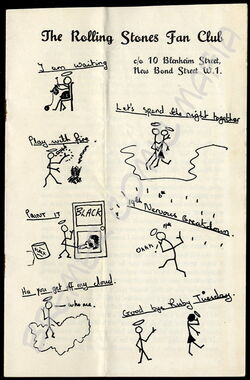 The Rolling Stones Fan Club
c/o 10 Blenheim Street,
New Bond Street W.1.
I am waiting
Let's spend the night together
Play with fire
Paint it
BLACK
19th Nervous Breakdown.
Ohhh!
Hey you get off my cloud.
who me.
Good bye Ruby Tuesday.